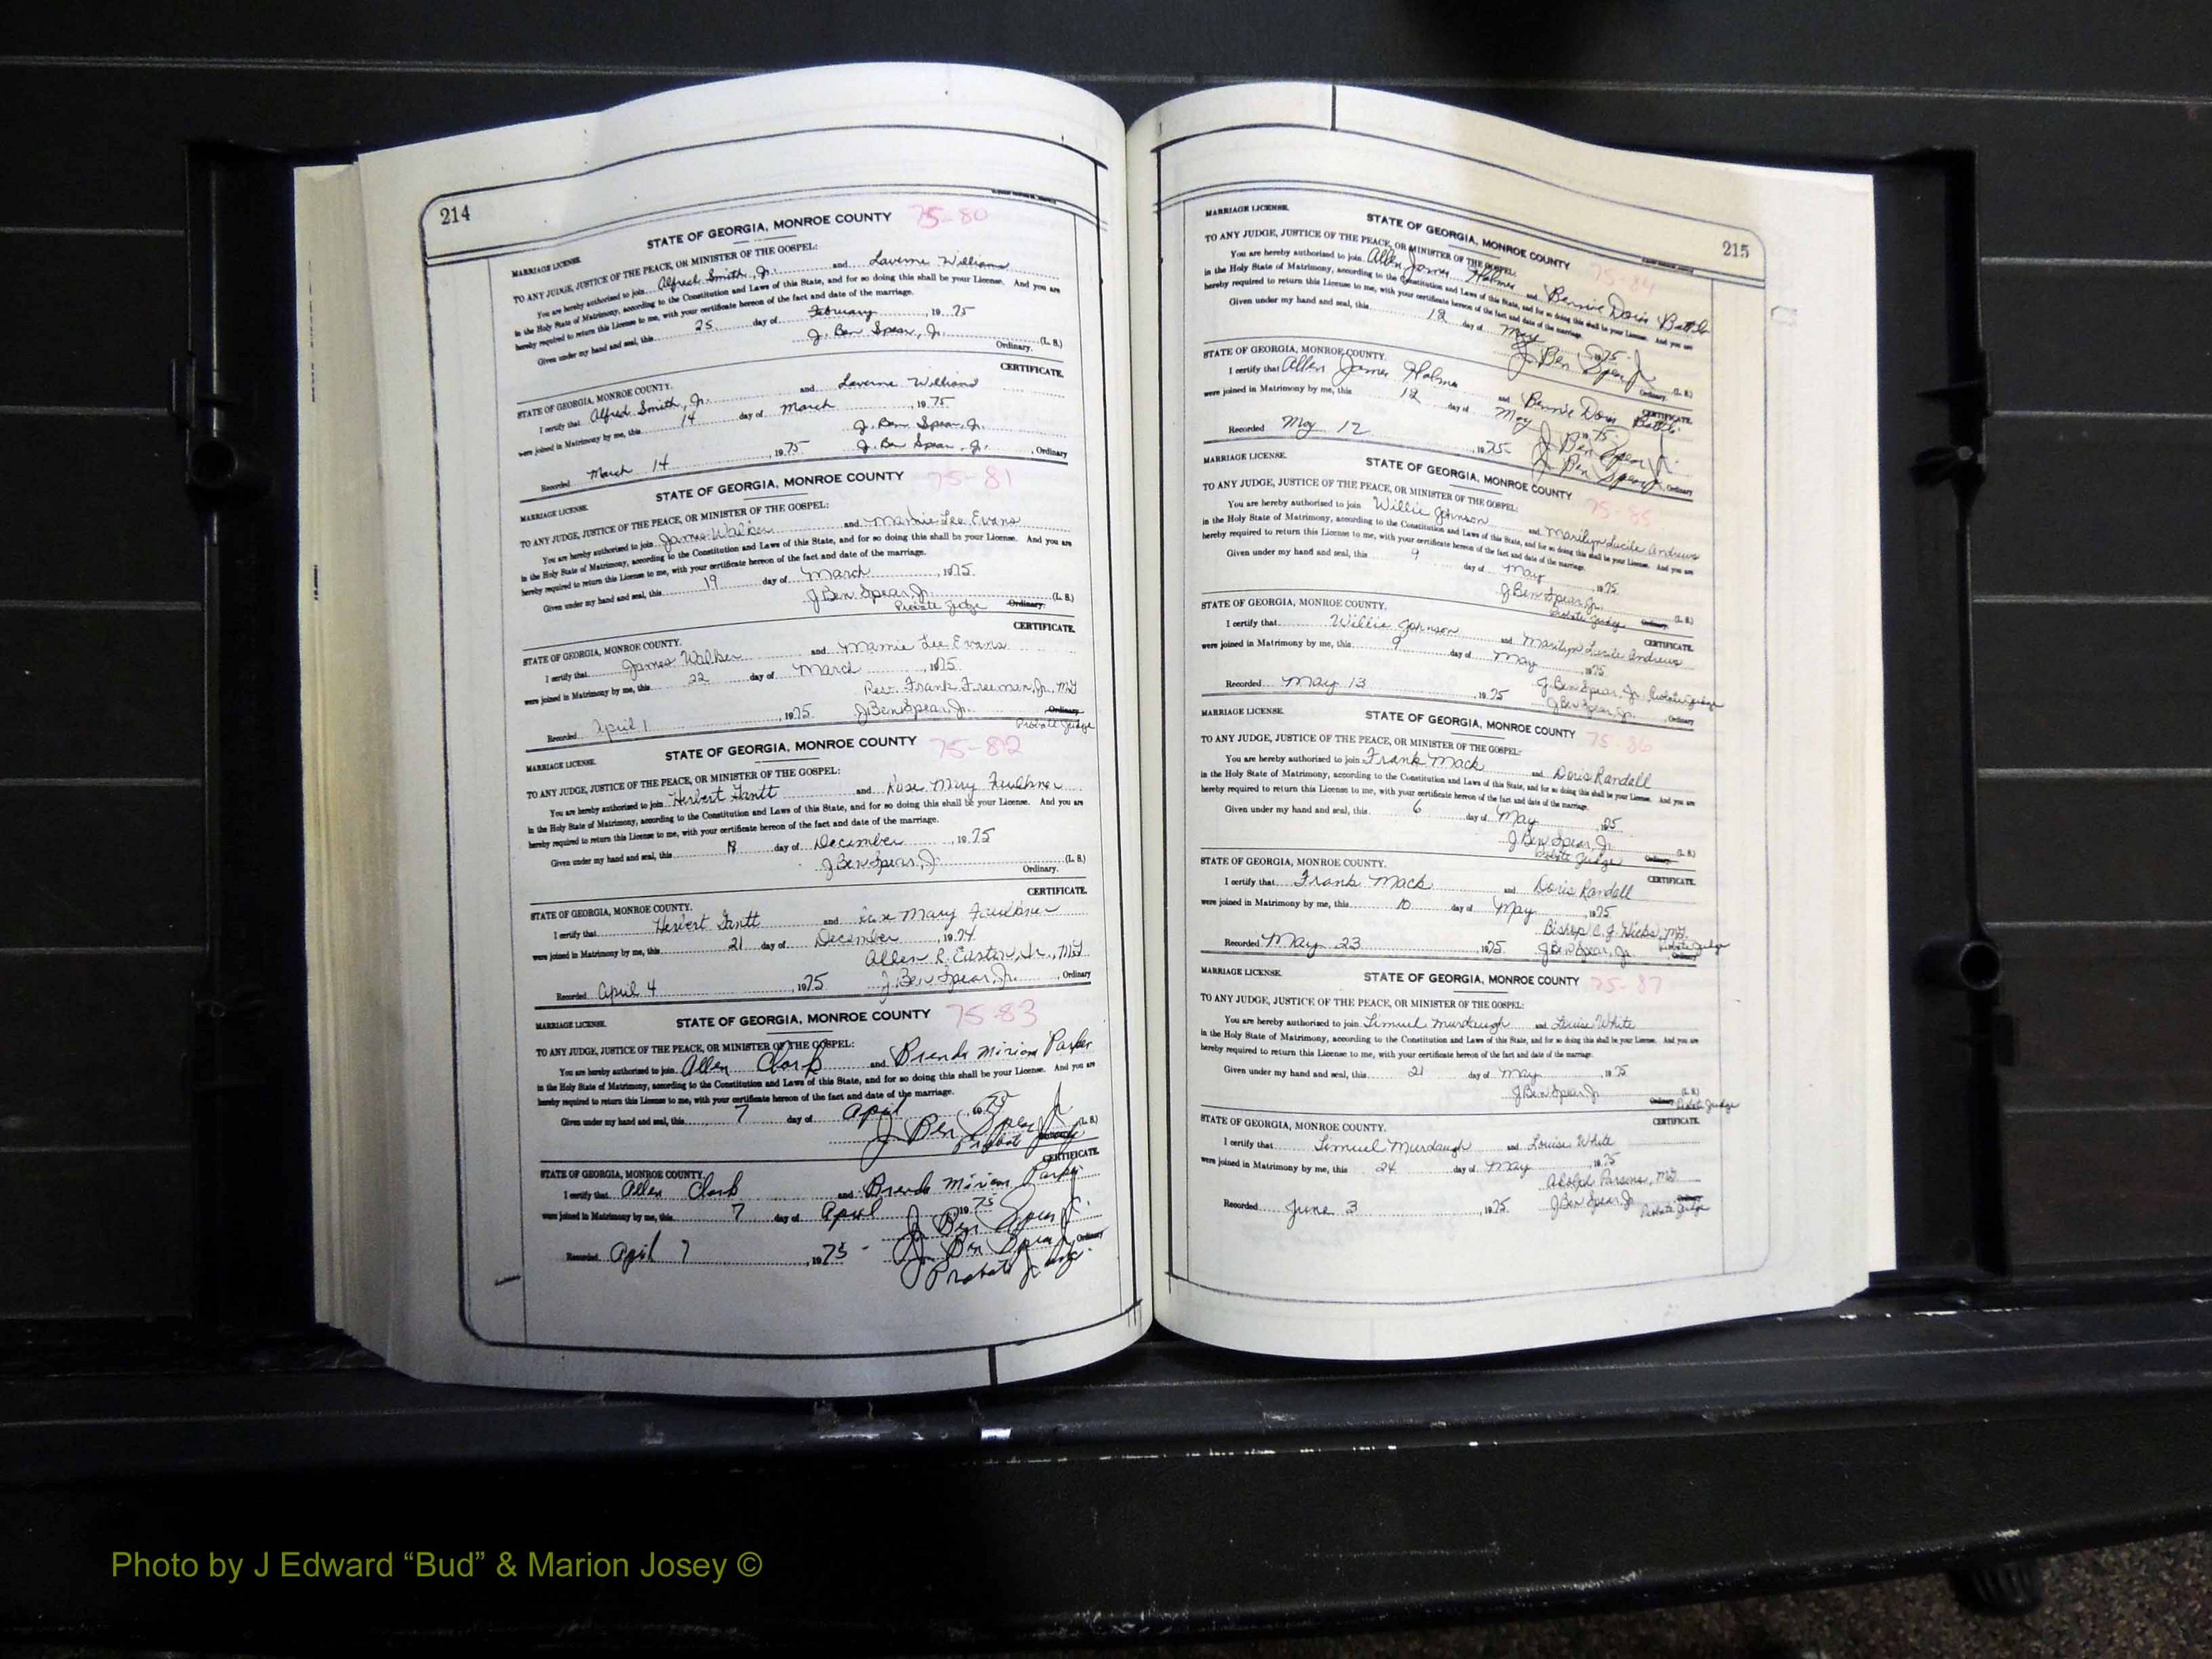 214
STATE OF GEORGIA, MONROE COUNTY 75-80
MARRIAGE LICENSE.
TO ANY JUDGE, JUSTICE OF THE PEACE, OR MINISTER OF THE GOSPEL:
You are hereby authorized to join Alfred Smith, Jr. and Laverne Williams
in the Holy State of Matrimony, according to the Constitution and Laws of this State, and for so doing this shall be your License. And you are
hereby required to return this License to me, with your certificate hereon of the fact and date of the marriage.
Given under my hand and seal, this 25 day of February, 1975
J. Ben Spear, Jr. (L. S.)
Ordinary.
CERTIFICATE.
STATE OF GEORGIA, MONROE COUNTY.
I certify that Alfred Smith, Jr. and Laverne Williams
were joined in Matrimony by me, this 14 day of March, 1975
J. Ben Spear, Jr.
Recorded March 14, 1975 J. Ben Spear, Jr., Ordinary
STATE OF GEORGIA, MONROE COUNTY 75-81
MARRIAGE LICENSE.
TO ANY JUDGE, JUSTICE OF THE PEACE, OR MINISTER OF THE GOSPEL:
You are hereby authorized to join James Walker and Mamie Lee Evans
in the Holy State of Matrimony, according to the Constitution and Laws of this State, and for so doing this shall be your License. And you are
hereby required to return this License to me, with your certificate hereon of the fact and date of the marriage.
Given under my hand and seal, this 19 day of March, 1975
J Ben Spear, Jr. (L. S.)
Probate Judge Ordinary.
CERTIFICATE.
STATE OF GEORGIA, MONROE COUNTY.
I certify that James Walker and Mamie Lee Evans
were joined in Matrimony by me, this 22 day of March, 1975
Rev. Frank Freeman, Jr., MG
Recorded April 1, 1975 J Ben Spear, Jr. Ordinary
Probate Judge
STATE OF GEORGIA, MONROE COUNTY 75-82
MARRIAGE LICENSE.
TO ANY JUDGE, JUSTICE OF THE PEACE, OR MINISTER OF THE GOSPEL:
You are hereby authorized to join Herbert Gantt and Rose Mary Faulkner
in the Holy State of Matrimony, according to the Constitution and Laws of this State, and for so doing this shall be your License. And you are
hereby required to return this License to me, with your certificate hereon of the fact and date of the marriage.
Given under my hand and seal, this 18 day of December, 1975
J Ben Spear, Jr. (L. S.)
Ordinary.
CERTIFICATE.
STATE OF GEORGIA, MONROE COUNTY.
I certify that Herbert Gantt and Rose Mary Faulkner
were joined in Matrimony by me, this 21 day of December, 1974
Allen R. Easton, Jr., MG
Recorded April 4, 1975 J. Ben Spear, Jr., Ordinary
STATE OF GEORGIA, MONROE COUNTY 75-83
MARRIAGE LICENSE.
TO ANY JUDGE, JUSTICE OF THE PEACE, OR MINISTER OF THE GOSPEL:
You are hereby authorized to join Allen Clark and Brenda Miriam Parker
in the Holy State of Matrimony, according to the Constitution and Laws of this State, and for so doing this shall be your License. And you are
hereby required to return this License to me, with your certificate hereon of the fact and date of the marriage.
Given under my hand and seal, this 7 day of April, 1975
J Ben Spear Jr (L. S.)
Probate Judge Ordinary.
CERTIFICATE.
STATE OF GEORGIA, MONROE COUNTY.
I certify that Allen Clark and Brenda Miriam Parker
were joined in Matrimony by me, this 7 day of April, 1975
J Ben Spear Jr.
Recorded April 7, 1975 J. Ben Spear Jr Ordinary
Probate Judge
215
MARRIAGE LICENSE.
STATE OF GEORGIA, MONROE COUNTY 75-84
TO ANY JUDGE, JUSTICE OF THE PEACE, OR MINISTER OF THE GOSPEL:
You are hereby authorized to join Allen James Holmes and Bennie Doris Battle
in the Holy State of Matrimony, according to the Constitution and Laws of this State, and for so doing this shall be your License. And you are
hereby required to return this License to me, with your certificate hereon of the fact and date of the marriage.
Given under my hand and seal, this 12 day of May, 1975
J Ben Spear Jr (L. S.)
Ordinary.
STATE OF GEORGIA, MONROE COUNTY.
CERTIFICATE.
I certify that Allen James Holmes and Bennie Doris Battle
were joined in Matrimony by me, this 12 day of May, 1975
J Ben Spear Jr.
Recorded May 12, 1975 J. Ben Spear Jr, Ordinary
MARRIAGE LICENSE.
STATE OF GEORGIA, MONROE COUNTY 75-85
TO ANY JUDGE, JUSTICE OF THE PEACE, OR MINISTER OF THE GOSPEL:
You are hereby authorized to join Willie Johnson and Marilyn Lucile Andrews
in the Holy State of Matrimony, according to the Constitution and Laws of this State, and for so doing this shall be your License. And you are
hereby required to return this License to me, with your certificate hereon of the fact and date of the marriage.
Given under my hand and seal, this 9 day of May, 1975
J Ben Spear, Jr. (L. S.)
Probate Judge Ordinary.
STATE OF GEORGIA, MONROE COUNTY.
CERTIFICATE.
I certify that Willie Johnson and Marilyn Lucile Andrews
were joined in Matrimony by me, this 9 day of May, 1975
J. Ben Spear, Jr. Probate Judge
Recorded May 13, 1975 J Ben Spear, Jr., Ordinary
MARRIAGE LICENSE.
STATE OF GEORGIA, MONROE COUNTY 75-86
TO ANY JUDGE, JUSTICE OF THE PEACE, OR MINISTER OF THE GOSPEL:
You are hereby authorized to join Frank Mack and Doris Randall
in the Holy State of Matrimony, according to the Constitution and Laws of this State, and for so doing this shall be your License. And you are
hereby required to return this License to me, with your certificate hereon of the fact and date of the marriage.
Given under my hand and seal, this 6 day of May, 1975
J Ben Spear, Jr. (L. S.)
Probate Judge Ordinary.
STATE OF GEORGIA, MONROE COUNTY.
CERTIFICATE.
I certify that Frank Mack and Doris Randall
were joined in Matrimony by me, this 10 day of May, 1975
Bishop C. J. Hicks, MG
Recorded May 23, 1975 J Ben Spear, Jr. Probate Judge
Ordinary
MARRIAGE LICENSE.
STATE OF GEORGIA, MONROE COUNTY 75-87
TO ANY JUDGE, JUSTICE OF THE PEACE, OR MINISTER OF THE GOSPEL:
You are hereby authorized to join Limuel Murdaugh and Louise White
in the Holy State of Matrimony, according to the Constitution and Laws of this State, and for so doing this shall be your License. And you are
hereby required to return this License to me, with your certificate hereon of the fact and date of the marriage.
Given under my hand and seal, this 21 day of May, 1975
J Ben Spear Jr (L. S.)
Ordinary Probate Judge
STATE OF GEORGIA, MONROE COUNTY.
CERTIFICATE.
I certify that Limuel Murdaugh and Louise White
were joined in Matrimony by me, this 24 day of May, 1975
Adolph Parsons, MG
Recorded June 3, 1975 J Ben Spear, Jr Ordinary
Probate Judge
Photo by J Edward “Bud” & Marion Josey ©